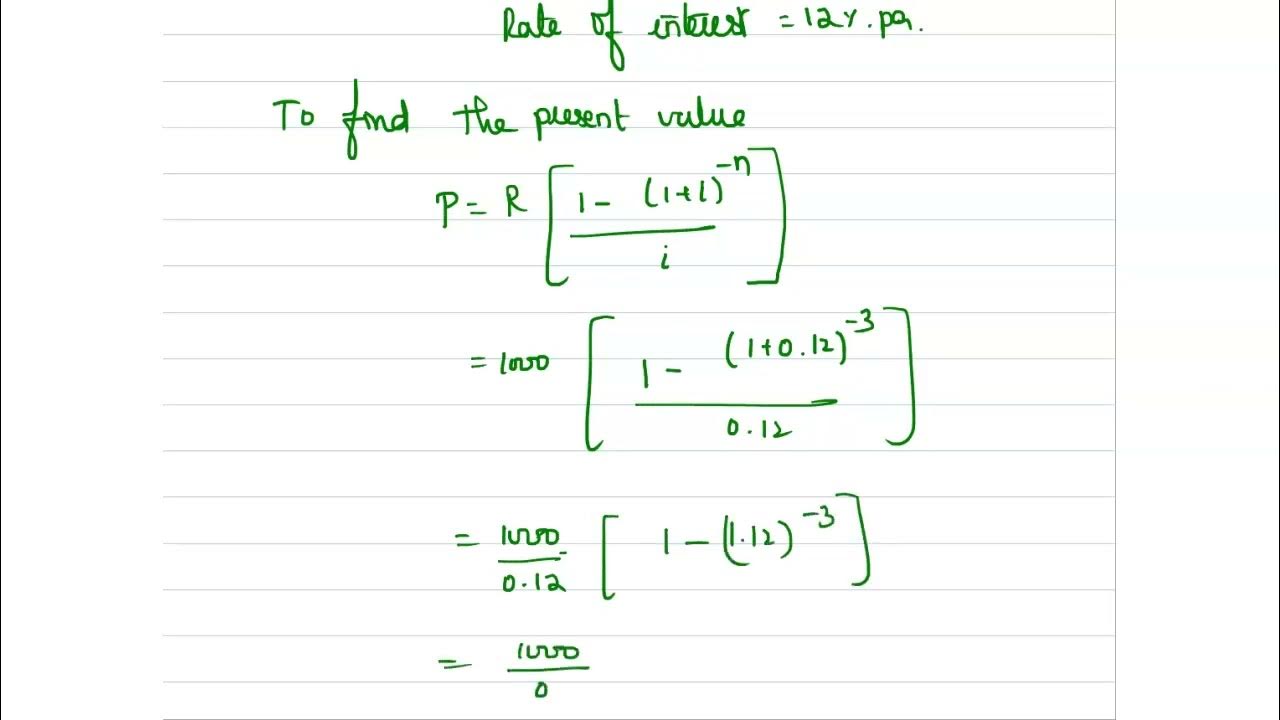 Rate of interest = 12%. pa.
To find the present value
P = R [ 1 - (1+i)^-n / i ]
= 1000 [ 1 - (1+0.12)^-3 / 0.12 ]
= 1000 / 0.12 [ 1 - (1.12)^-3 ]
= 1000 / 0